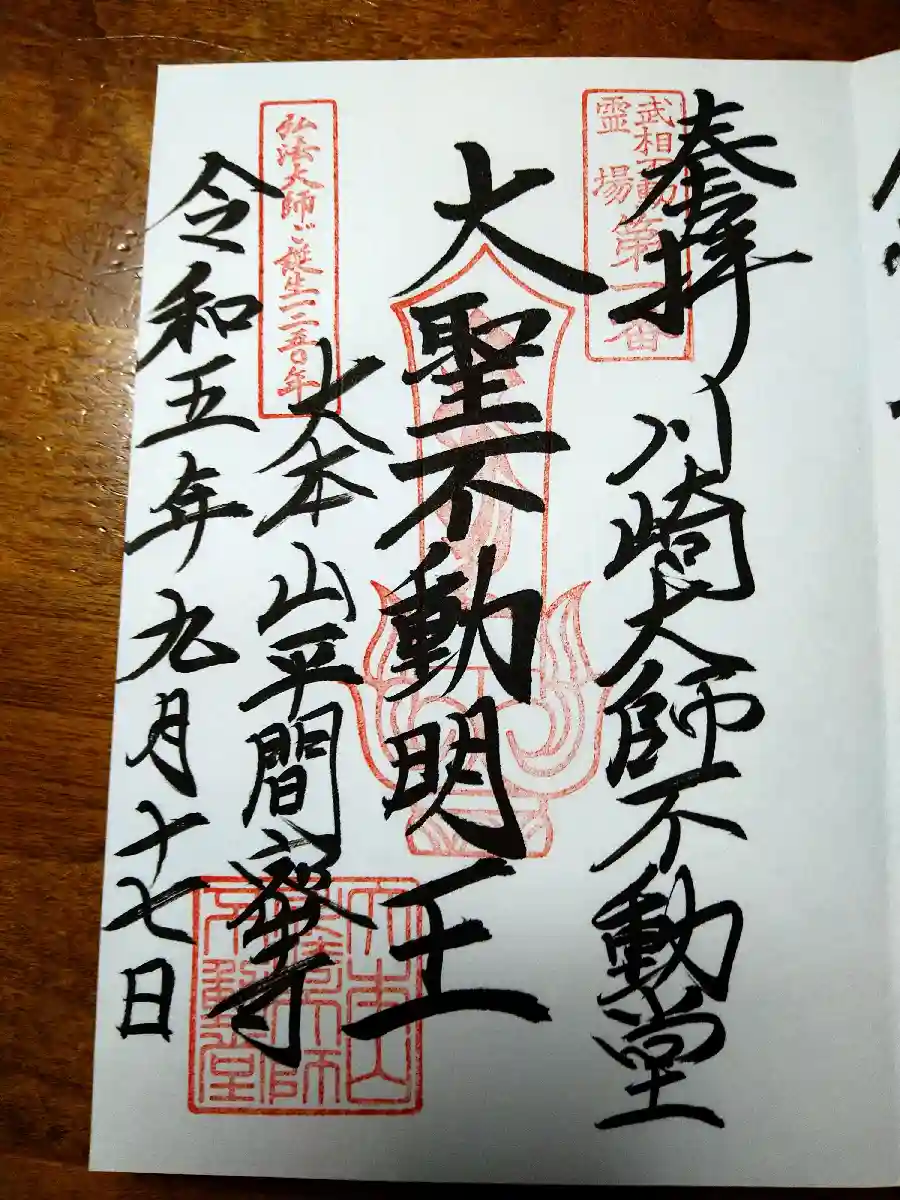 奉拝
武相不動
霊場
第一番
川崎大師不動堂
大聖不動明王
弘法大師ご誕生一二五〇年
大本山平間寺
令和五年九月十七日
大本山
川崎大師
不動堂